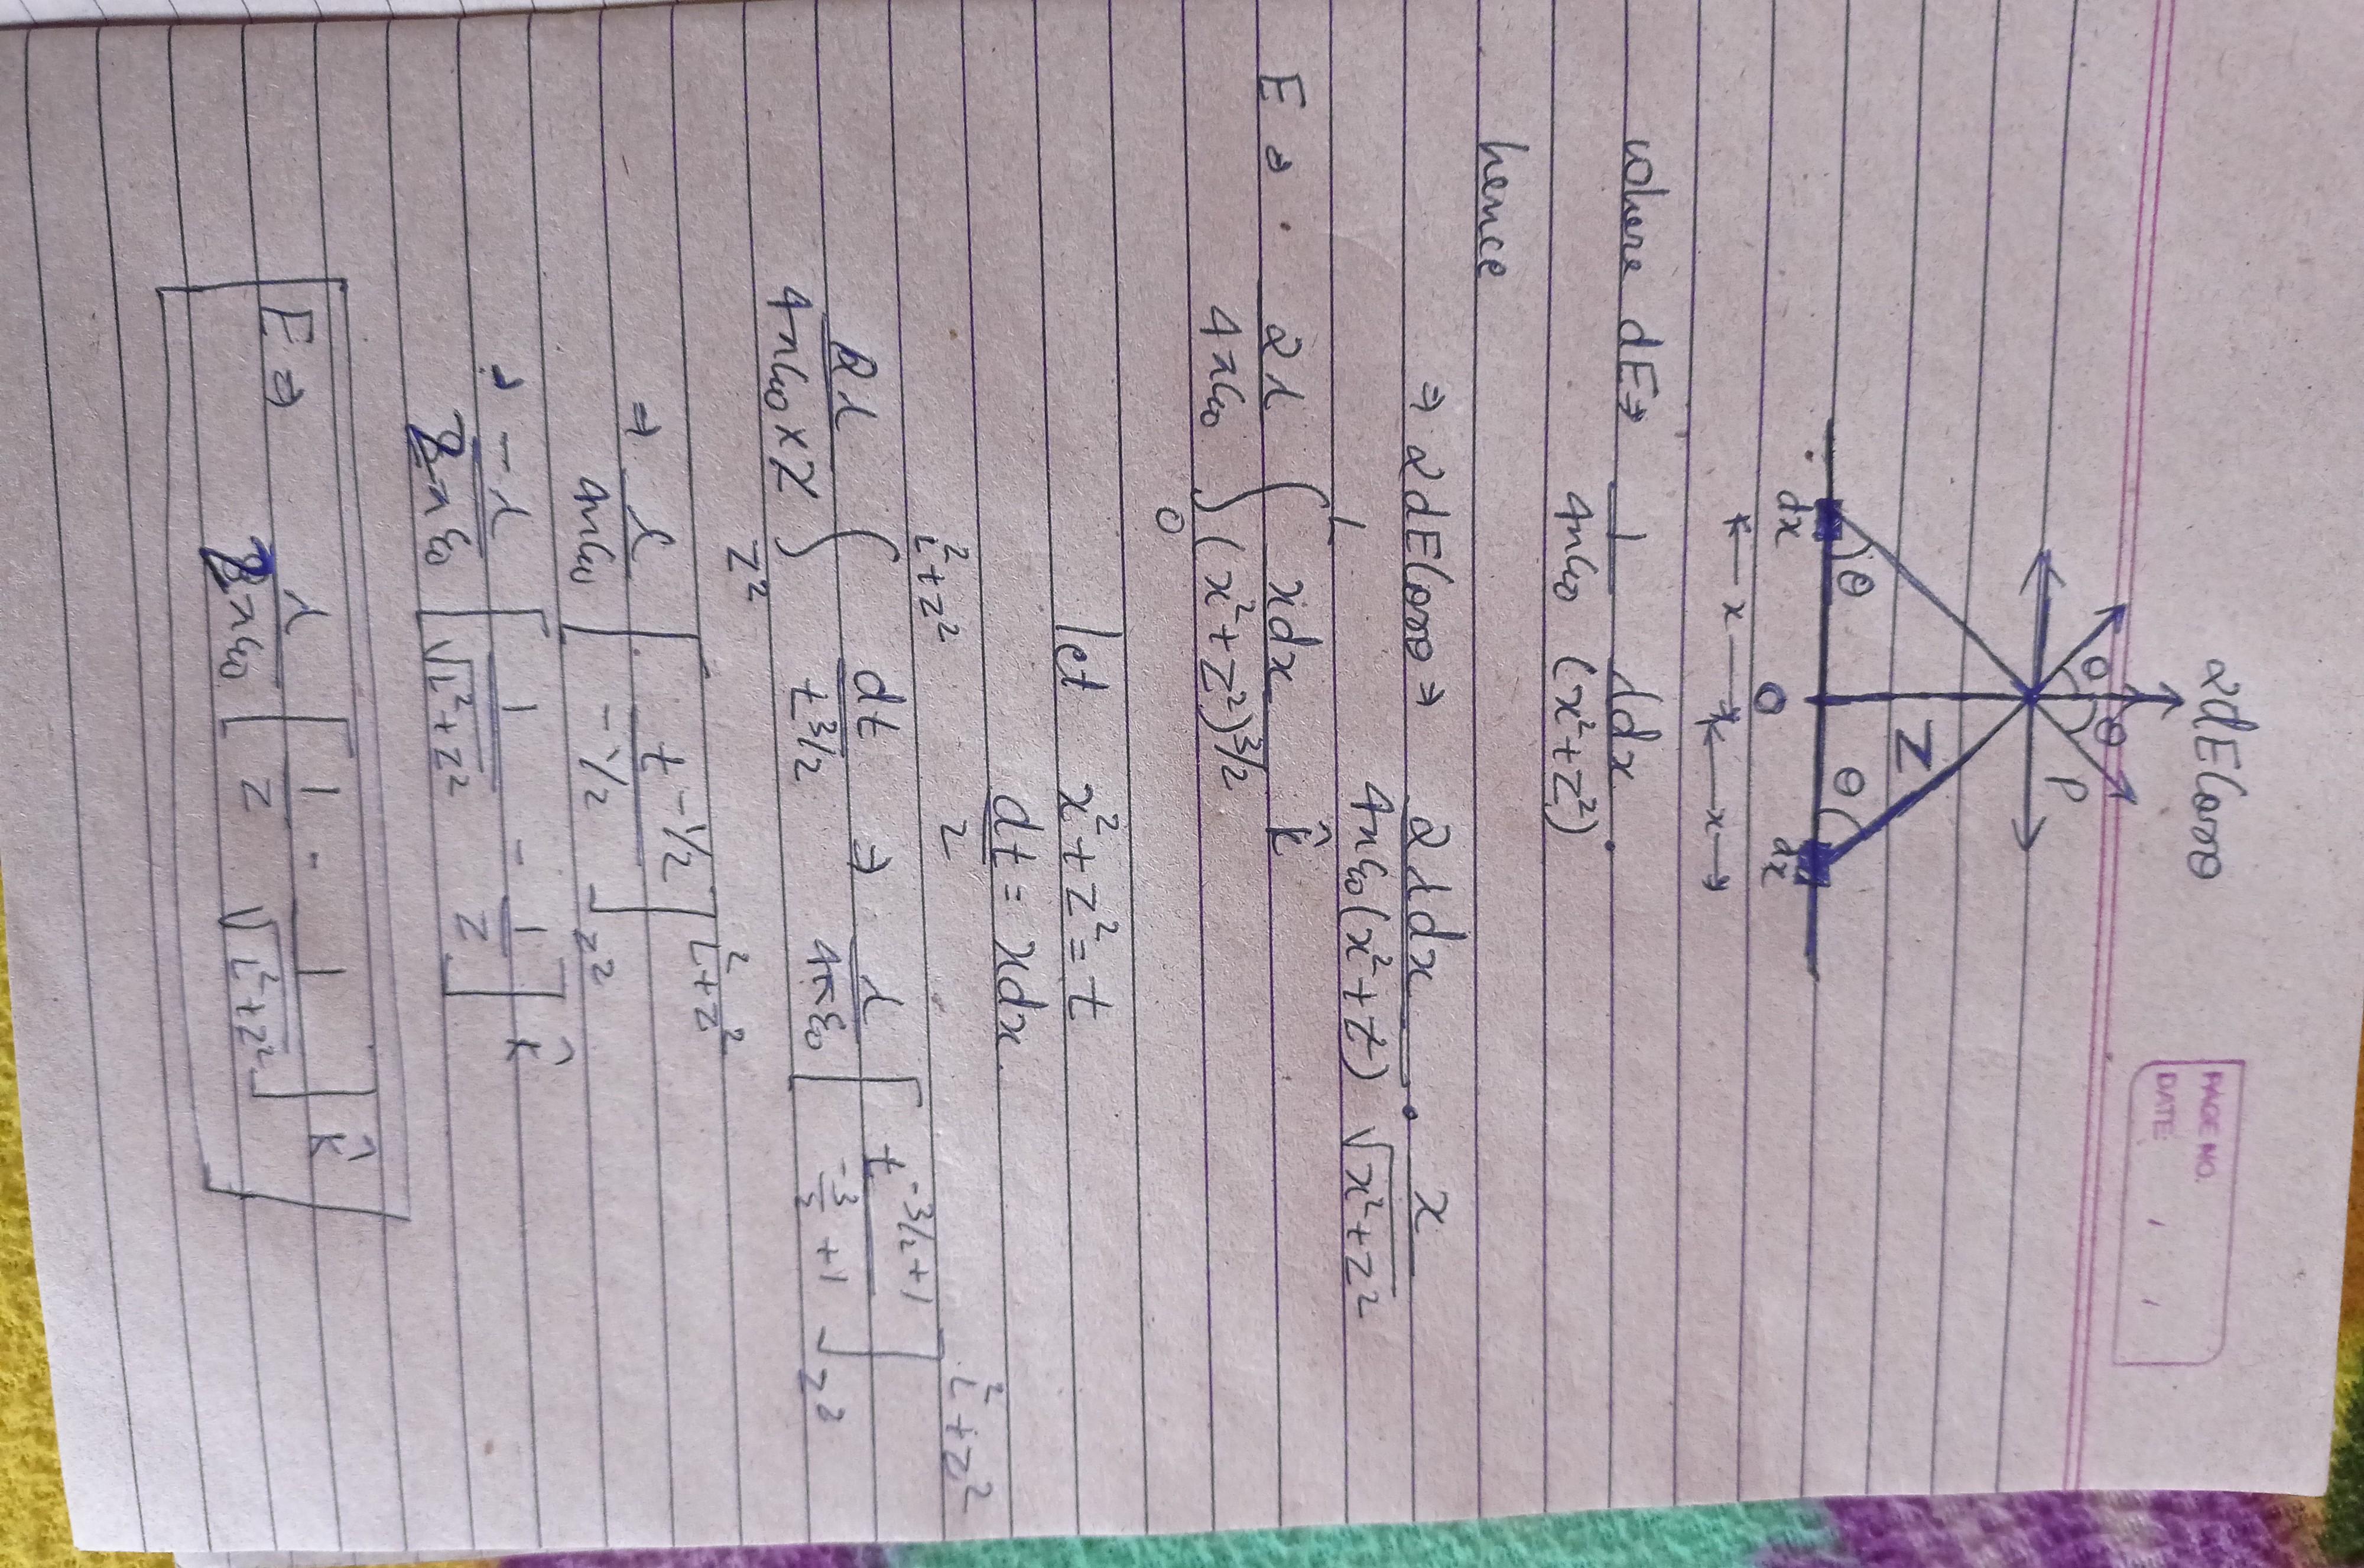 PAGE NO.
DATE: / /
2dEcosθ
θ θ
P
Z
θ θ
dx O dx
x x
where dE → 1/4πε₀ λdx/(x²+z²).
hence
⇒ 2dEcosθ ⇒ 2λdx/4πε₀(x²+z) · x/√x²+z²
E ⇒ 2λ/4πε₀ ∫₀ᴸ xdx/(x²+z²)^3/2 k̂
let x²+z² = t
dt/2 = xdx
2λ/4πε₀×2 ∫_z²^L²+z² dt/t^3/2 ⇒ λ/4πε₀ [t^-3/2+1/-3/2+1]_z²^L²+z²
⇒ λ/4πε₀ [t^-1/2/-1/2]_z²^L²+z²
⇒ -λ/2πε₀ [1/√L²+z² - 1/z] k̂
E ⇒ λ/2πε₀ [1/z - 1/√L²+z²] k̂